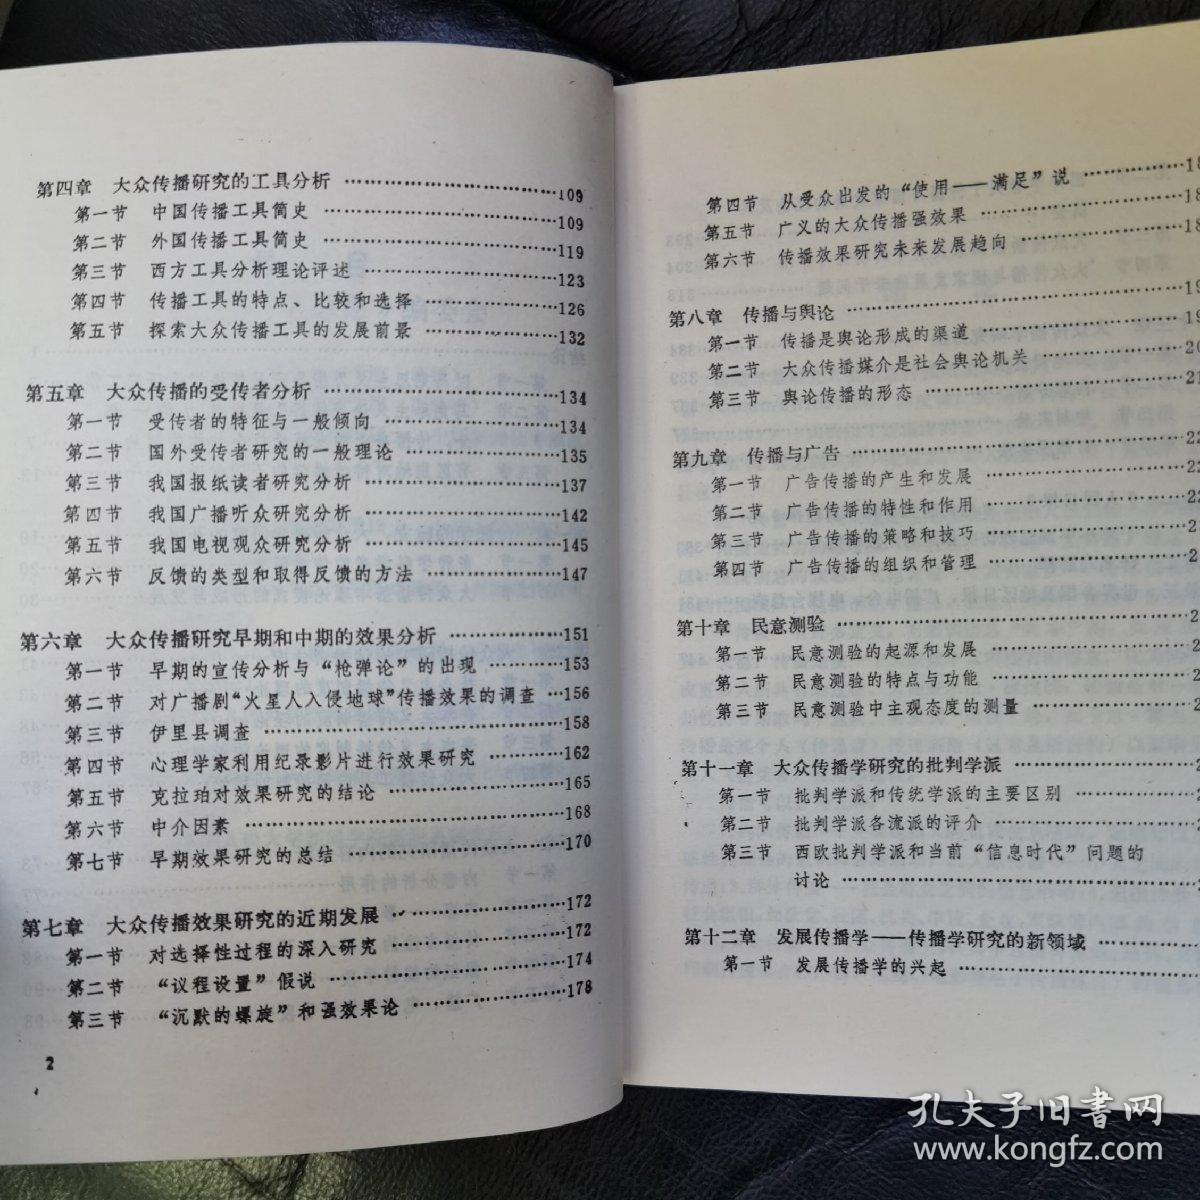 第四章 大众传播研究的工具分析 ……………………109
第一节 中国传播工具简史 ……………………109
第二节 外国传播工具简史 ……………………119
第三节 西方工具分析理论评述 ……………………123
第四节 传播工具的特点、比较和选择 ……………………126
第五节 探索大众传播工具的发展前景 ……………………132
第五章 大众传播的受传者分析 ……………………134
第一节 受传者的特征与一般倾向 ……………………134
第二节 国外受传者研究的一般理论 ……………………135
第三节 我国报纸读者研究分析 ……………………137
第四节 我国广播听众研究分析 ……………………142
第五节 我国电视观众研究分析 ……………………145
第六节 反馈的类型和取得反馈的方法 ……………………147
第六章 大众传播研究早期和中期的效果分析 ……………151
第一节 早期的宣传分析与“枪弹论”的出现 ……………153
第二节 对广播剧“火星人入侵地球”传播效果的调查 …156
第三节 伊里县调查 ……………………158
第四节 心理学家利用纪录影片进行效果研究 …………162
第五节 克拉珀对效果研究的结论 ……………………165
第六节 中介因素 ……………………168
第七节 早期效果研究的总结 ……………………170
第七章 大众传播效果研究的近期发展 ……………………172
第一节 对选择性过程的深入研究 ……………………172
第二节 “议程设置”假说 ……………………174
第三节 “沉默的螺旋”和强效果论 ……………………178
2
第四节 从受众出发的“使用——满足”说 ……………18
第五节 广义的大众传播强效果 ……………………18
第六节 传播效果研究未来发展趋向 ……………………18
第八章 传播与舆论 ……………………19
第一节 传播是舆论形成的渠道 ……………………19
第二节 大众传播媒介是社会舆论机关 ……………………20
第三节 舆论传播的形态 ……………………21
第九章 传播与广告 ……………………22
第一节 广告传播的产生和发展 ……………………22
第二节 广告传播的特性和作用 ……………………22
第三节 广告传播的策略和技巧 ……………………2
第四节 广告传播的组织和管理 ……………………2
第十章 民意测验 ……………………2
第一节 民意测验的起源和发展 ……………………2
第二节 民意测验的特点与功能 ……………………2
第三节 民意测验中主观态度的测量 ……………………2
第十一章 大众传播学研究的批判学派 ……………………2
第一节 批判学派和传统学派的主要区别 ……………………2
第二节 批判学派各流派的评介 ……………………2
第三节 西欧批判学派和当前“信息时代”问题的
讨论 ……………………2
第十二章 发展传播学——传播学研究的新领域 …………
第一节 发展传播学的兴起 ……………………
孔夫子旧书网
www.kongfz.com